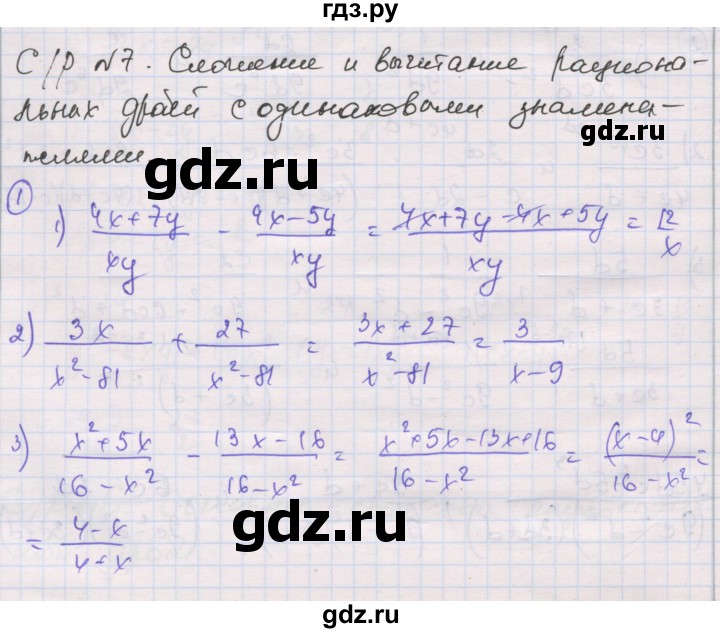 гдз.ру
С/р №7. Сложение и вычитание рациона-
льных дробей с одинаковыми знамена-
телями.
gdz.ru
1
1) (4x+7y)/(xy) - (4x-5y)/(xy) = (4x+7y-4x+5y)/(xy) = 12/x
2) 3x/(x²-81) + 27/(x²-81) = (3x+27)/(x²-81) = 3/(x-9)
gdz.ru
3) (x²+5x)/(16-x²) - (13x-16)/(16-x²) = (x²+5x-13x+16)/(16-x²) = (x-4)²/(16-x²) =
gdz.ru
= (4-x)/(4+x)
gdz.ru